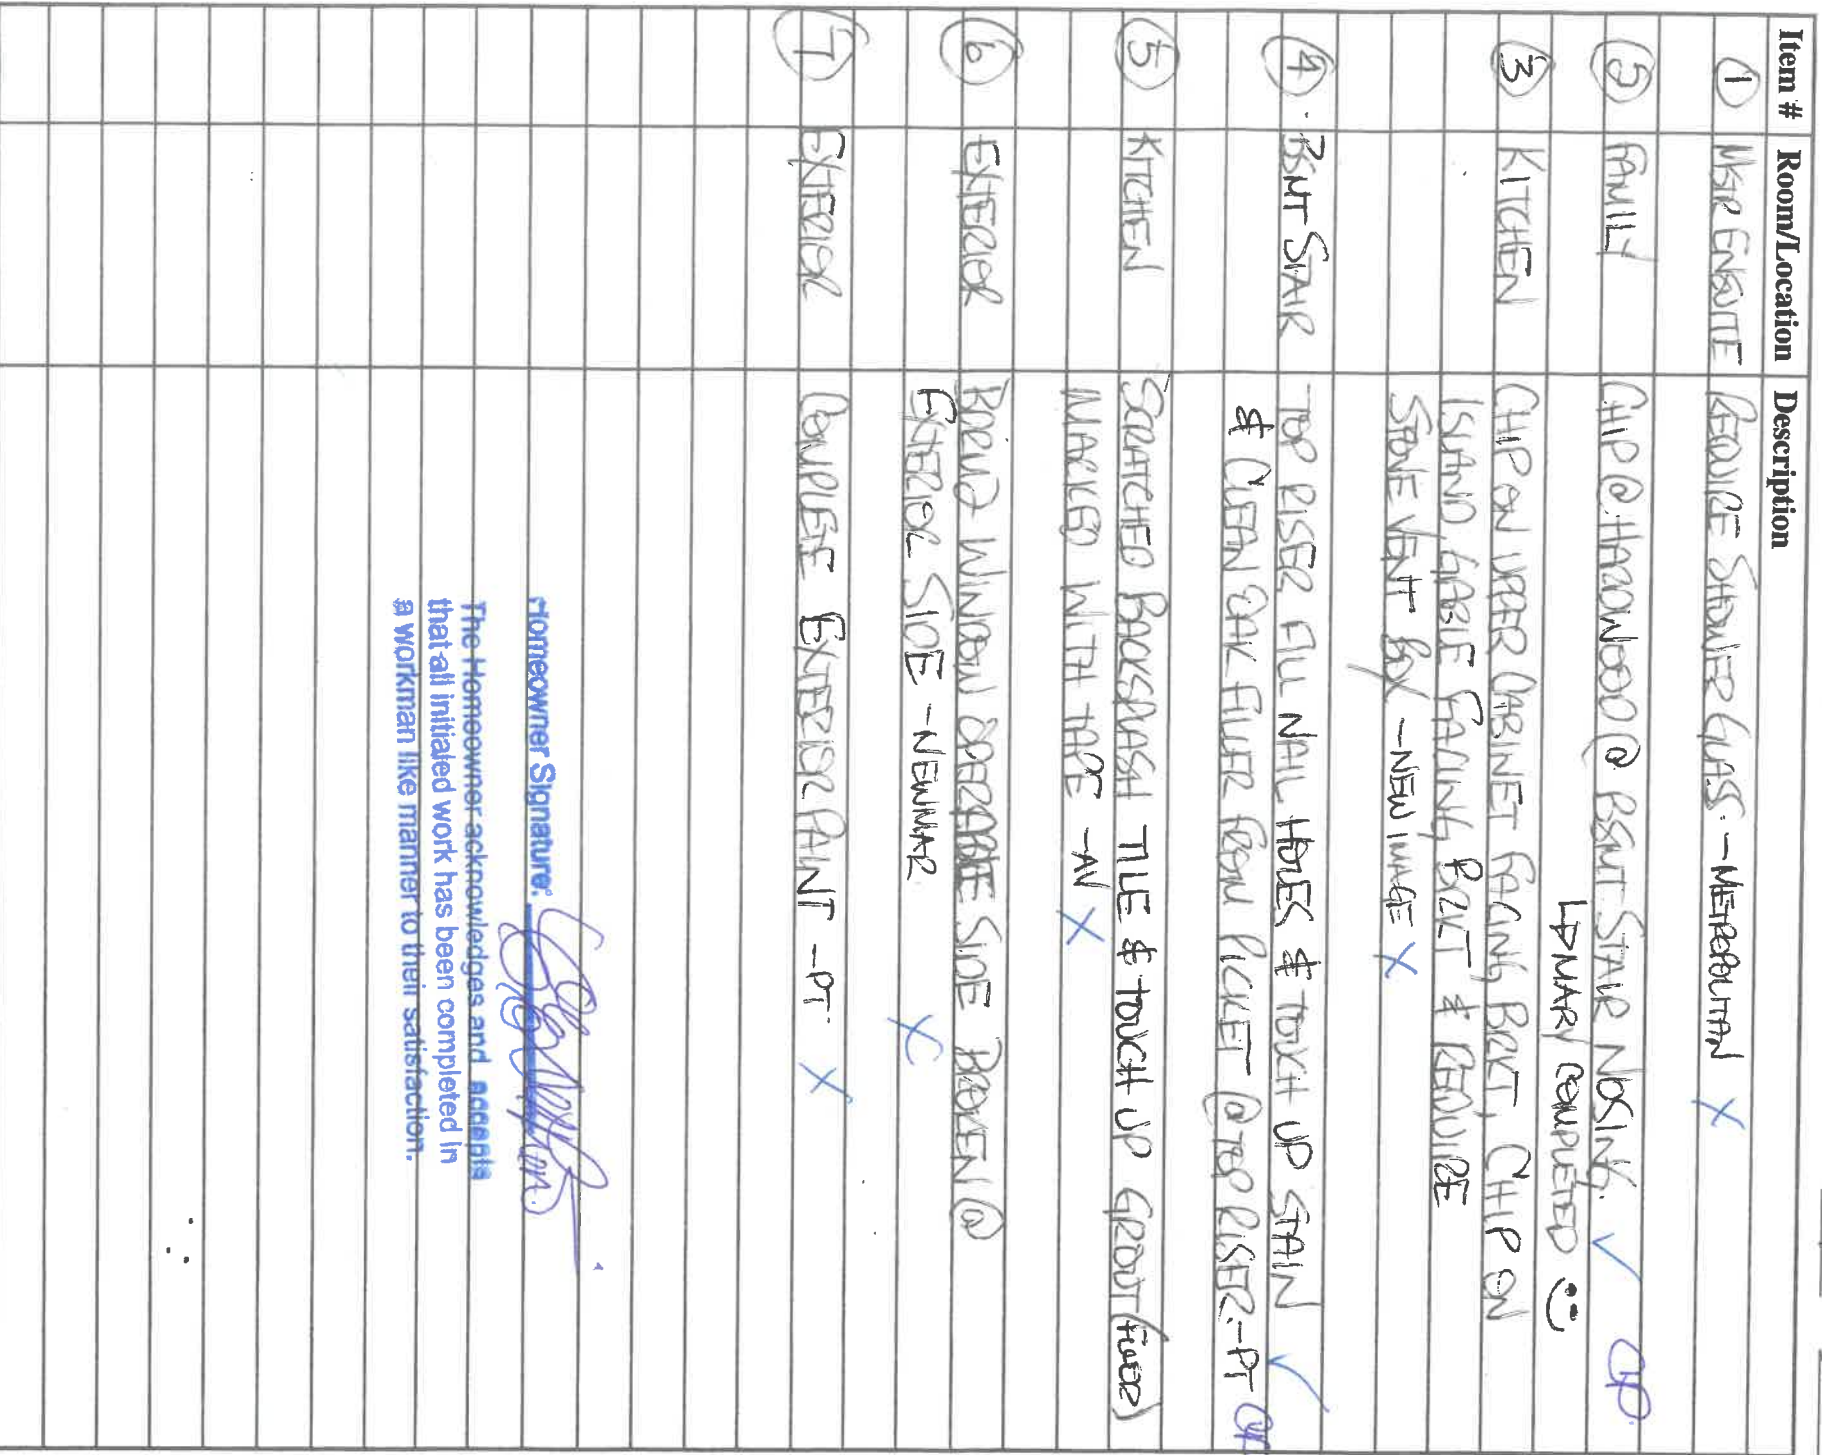 Item # Room/Location Description
① MSTR ENSUITE REQUIRE SHOWER GLASS. -METROPOLITAN X
⑤ FAMILY CHIP @ HARDWOOD @ BSMT STAIR NOSING. ✓ CP
↳MARY COMPLETED ☺
③ KITCHEN CHIP ON UPPER CABINET FACING BRKT, CHIP ON
ISLAND GABLE FACING BRKT & REQUIRE
STOVE VENT BOX -NEW IMAGE X
④ BSMT STAIR TOP RISER FILL NAIL HOLES & TOUCH UP STAIN ✓
& CLEAN FILLER FROM PICKET @ TOP RISER.-PT CP
⑤ KITCHEN SCRATCHED BACKSPLASH TILE & TOUCH UP GROUT
MARKED WITH TAPE -AV X
⑥ EXTERIOR WINDOW SIDE BROKEN @
EXTERIOR SIDE -NEWMAR X
⑦ EXTERIOR COMPLETE EXTERIOR PAINT -PT. X
Homeowner Signature.
The Homeowner acknowledges and accepts
that all initialed work has been completed in
a workman like manner to their satisfaction.